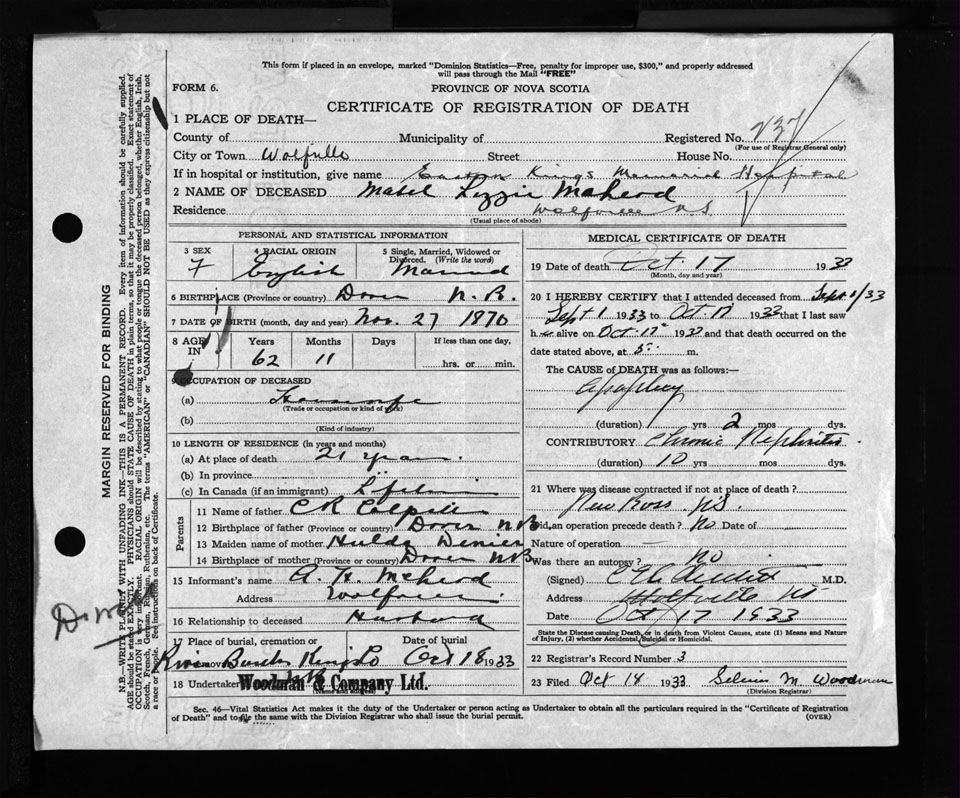 This form if placed in an envelope, marked "Dominion Statistics—Free, penalty for improper use, $300," and properly addressed
will pass through the Mail "FREE"
FORM 6.
PROVINCE OF NOVA SCOTIA
CERTIFICATE OF REGISTRATION OF DEATH
1 PLACE OF DEATH—
County of Municipality of Registered No. 237
(For use of Registrar General only)
City or Town Wolfville Street House No.
If in hospital or institution, give name Eastern Kings Memorial Hospital
2 NAME OF DECEASED Mabel Lizzie McLeod
Residence Wolfville NS
(Usual place of abode)
PERSONAL AND STATISTICAL INFORMATION
3 SEX 4 RACIAL ORIGIN 5 Single, Married, Widowed or
Divorced. (Write the word)
F English Married
6 BIRTHPLACE (Province or country) Dover N.B.
7 DATE OF BIRTH (month, day and year) Nov. 27 1870
8 AGE Years Months Days If less than one day,
IN 62 11 hrs. or min.
9 OCCUPATION OF DECEASED
(a) Housewife
(Trade or occupation or kind of work)
(b)
(Kind of industry)
10 LENGTH OF RESIDENCE (in years and months)
(a) At place of death 21 years.
(b) In province
(c) In Canada (if an immigrant) Lifetime
Parents
11 Name of father CR Colpitts
12 Birthplace of father (Province or country) Dover NB
13 Maiden name of mother Hulda
14 Birthplace of mother (Province or country) Dover NB
15 Informant's name A. H. McLeod
Address Wolfville
16 Relationship to deceased Husband
17 Place of burial, cremation or Date of burial
removal Kings Co Oct 18 1933
18 Undertaker Woodman & Company Ltd.
(Name and address)
MEDICAL CERTIFICATE OF DEATH
19 Date of death Oct. 17 1933
(Month, day and year)
20 I HEREBY CERTIFY that I attended deceased from Sept 1/33
Sept 1 1933 to Oct 17 1933 that I last saw
h er alive on Oct 17 1933 and that death occurred on
date stated above, at 5 m.
The CAUSE of DEATH was as follows:—
Apoplexy
(duration) yrs 2 mos dys.
CONTRIBUTORY Chronic Nephritis.
(duration) 10 yrs mos dys.
21 Where was disease contracted if not at place of death?
New Ross NS.
Did an operation precede death? No Date of
Nature of operation —
Was there an autopsy? no.
(Signed) M.D.
Address Wolfville NS
Date Oct 17 1933
State the Disease causing Death, or in death from Violent Causes, state (1) Means and Nature
of Injury, (2) whether Accidental, Suicidal or Homicidal.
22 Registrar's Record Number 3
23 Filed Oct 18 1933 M. Woodman
(Division Registrar)
Sec. 46—Vital Statistics Act makes it the duty of the Undertaker or person acting as Undertaker to obtain all the particulars required in the "Certificate of Registration
of Death" and to file the same with the Division Registrar who shall issue the burial permit. (OVER)
MARGIN RESERVED FOR BINDING
N.B.—WRITE PLAINLY WITH UNFADING INK—THIS IS A PERMANENT RECORD. Every item of information should be carefully supplied.
AGE should be stated EXACTLY. PHYSICIANS should STATE CAUSE OF DEATH in plain terms, so that it may be properly classified. Exact statement of
OCCUPATION is very important. RACIAL ORIGIN will be described by stating to what people or tongue the deceased person belonged, whether English, Irish,
Scotch, French, German, Russian, Ruthenian, etc. The terms "AMERICAN" or "CANADIAN" SHOULD NOT BE USED as they express citizenship but not
a race or people. See instructions on back of Certificate.